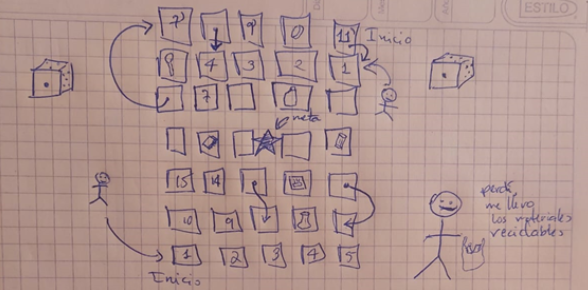 ESTILO
7 9 0 11 Inicio
8 4 3 2 1
7
meta
15 14
10 9
1 2 3 4 5
Inicio
perdí
me llevo
los materiales
reciclables